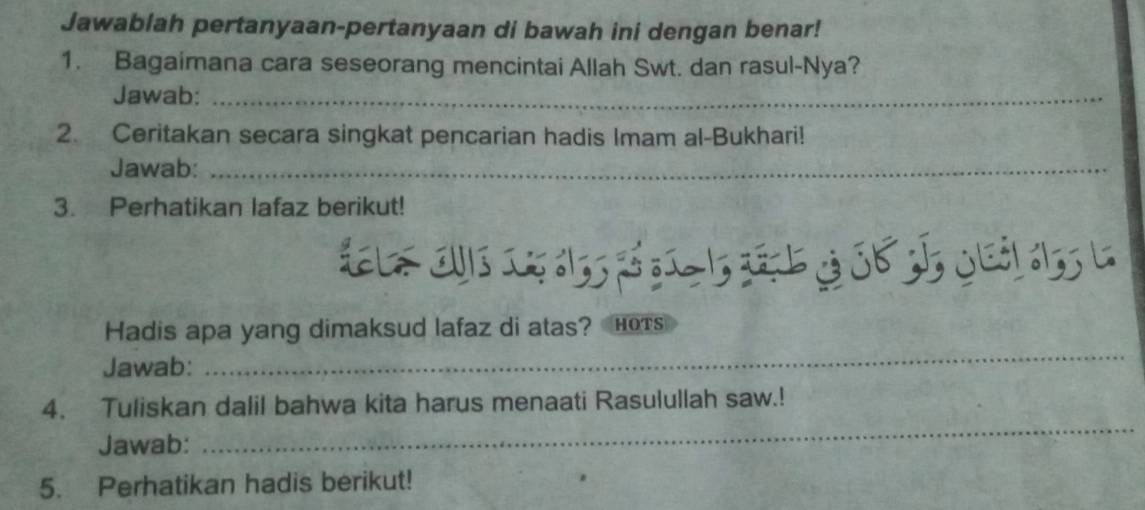 Jawablah pertanyaan-pertanyaan di bawah ini dengan benar!
1. Bagaimana cara seseorang mencintai Allah Swt. dan rasul-Nya?
Jawab: ....................
2. Ceritakan secara singkat pencarian hadis Imam al-Bukhari!
Jawab: ....................
3. Perhatikan lafaz berikut!
مَا رَوَاهُ اِثْنَانِ وَلَوْ كَانَ فِي طَبَقَةٍ وَاحِدَةٍ ثُمَّ رَوَاهُ بَعْدَ ذَالِكَ جَمَاعَةٌ
Hadis apa yang dimaksud lafaz di atas? HOTS
Jawab: ....................
4. Tuliskan dalil bahwa kita harus menaati Rasulullah saw.!
Jawab: ....................
5. Perhatikan hadis berikut!